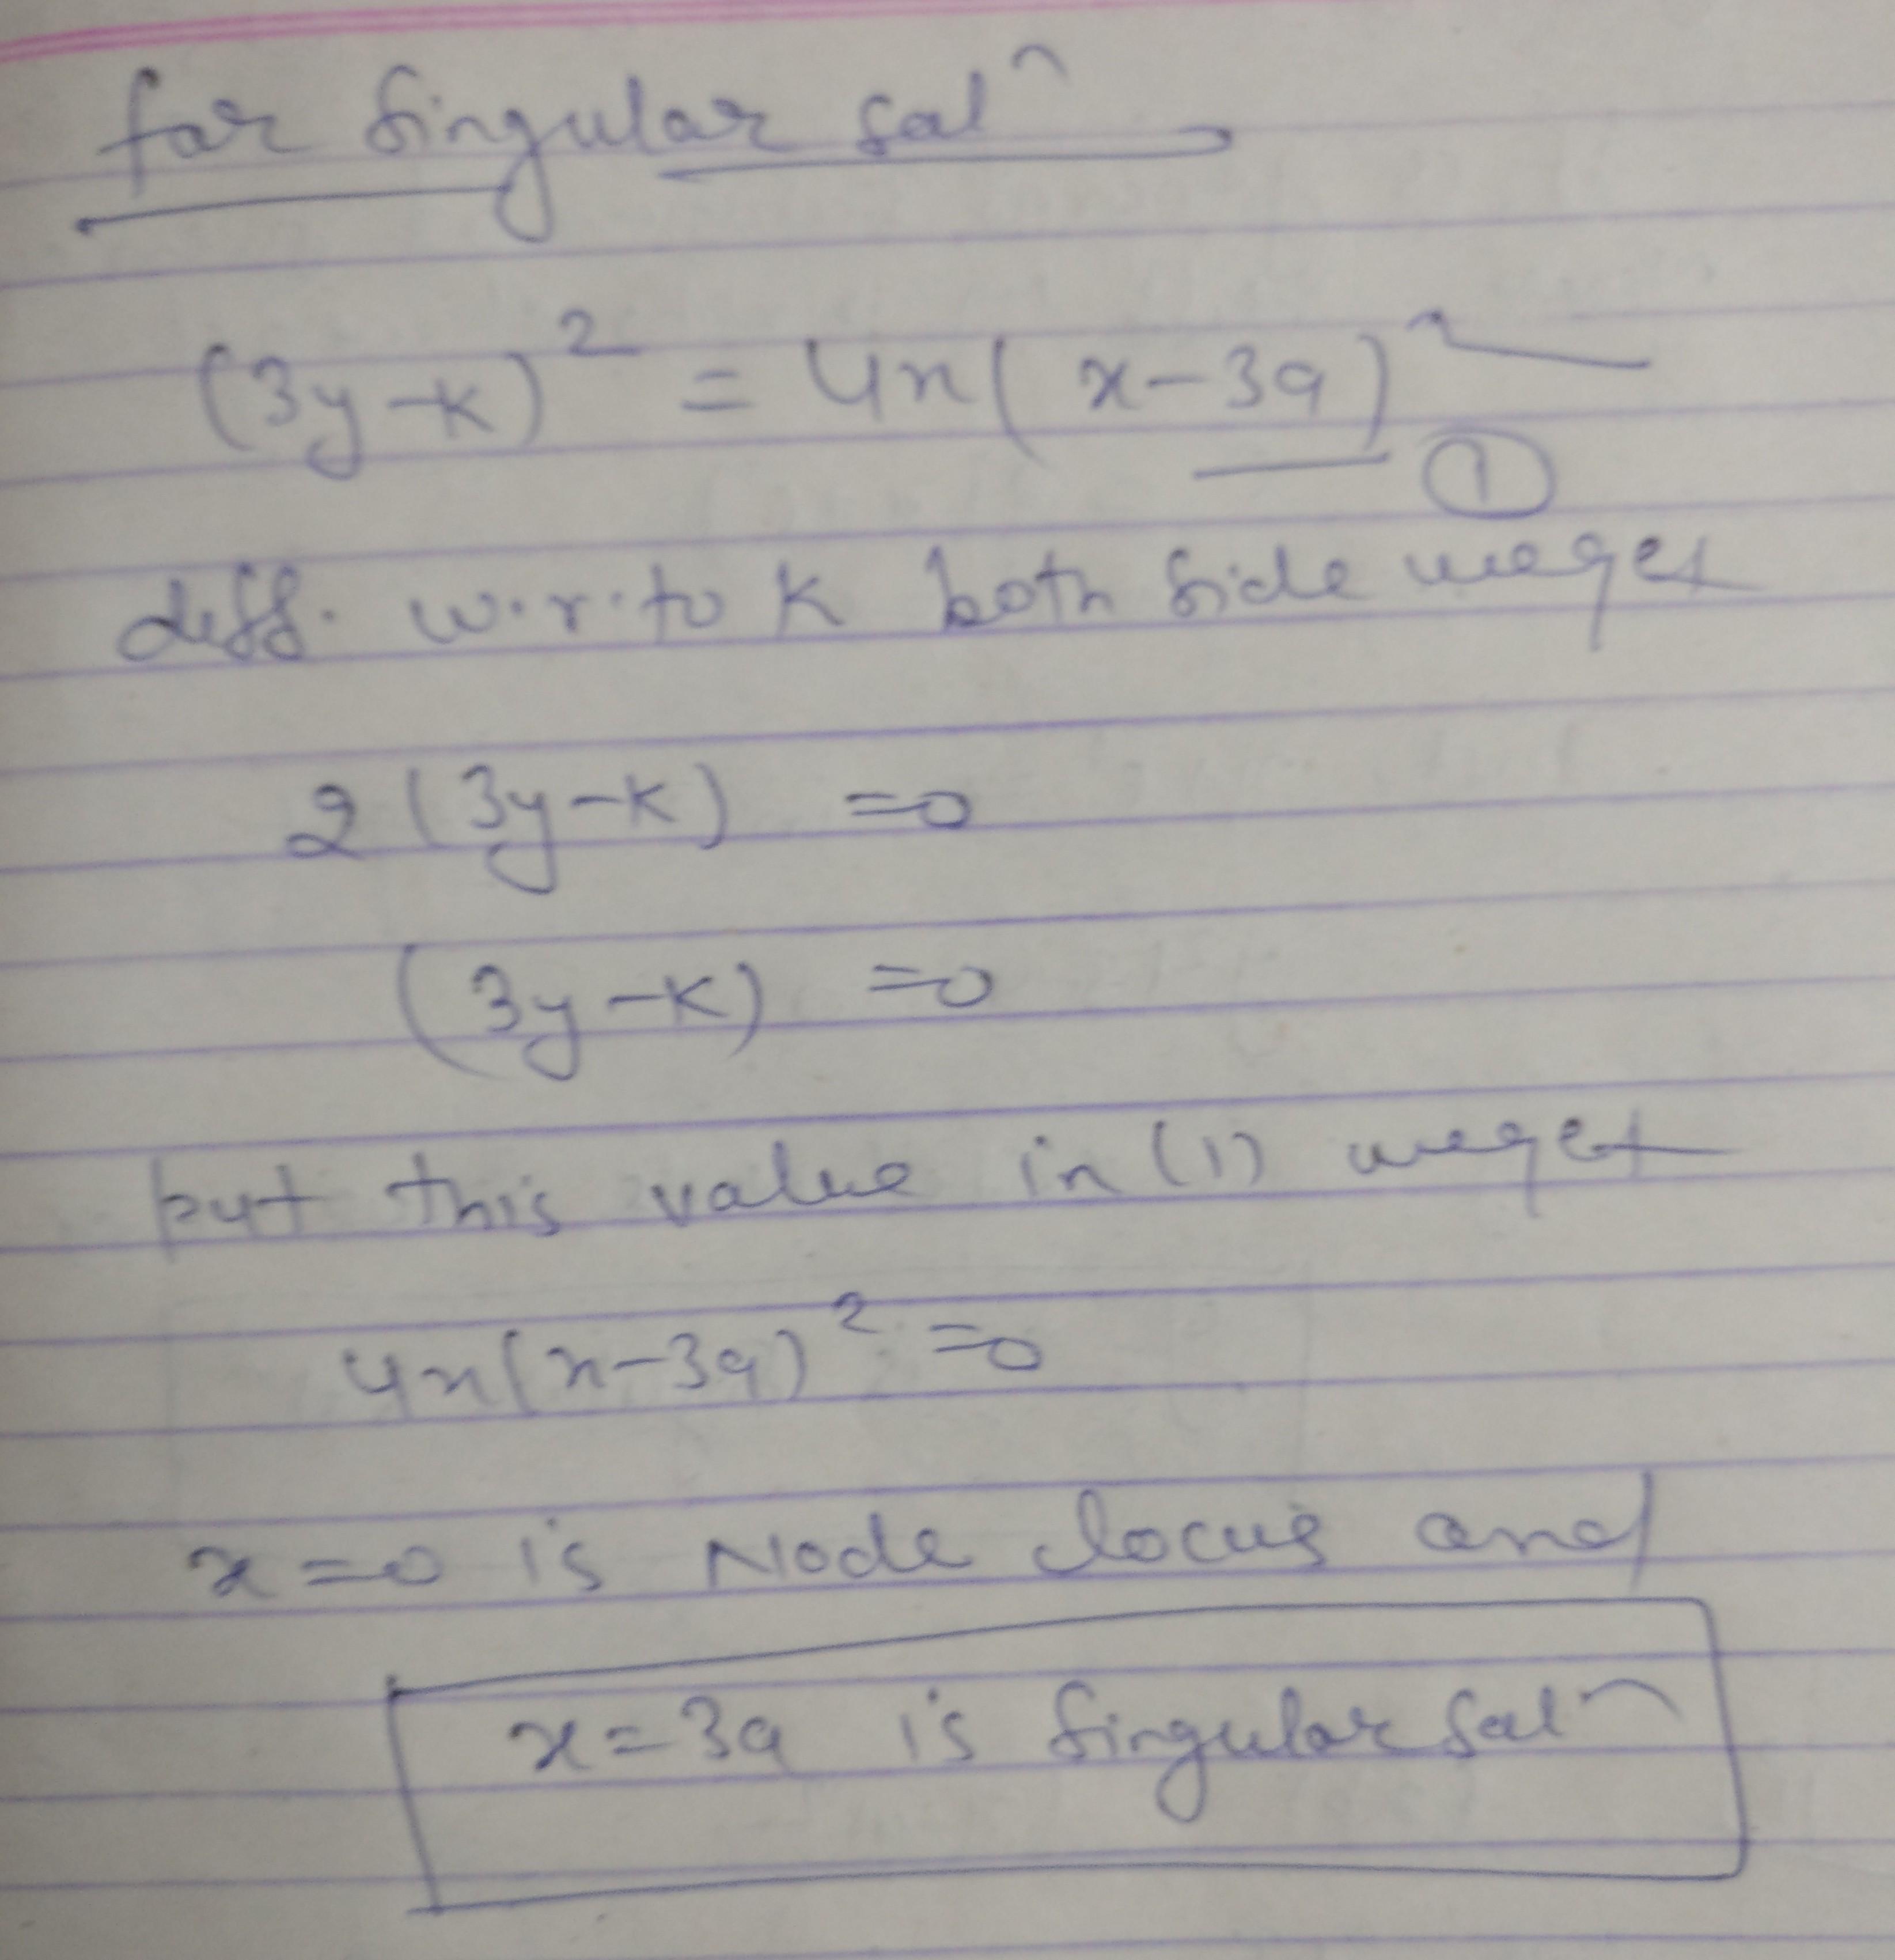 for singular solⁿ
(3y-k)² = 4x(x-3a)²
①
diff. w.r.to k both side we get
2(3y-k) =0
(3y-k) =0
put this value in (1) we get
4x(x-3a)² =0
x=0 is Node locus and
x=3a is singular solⁿ